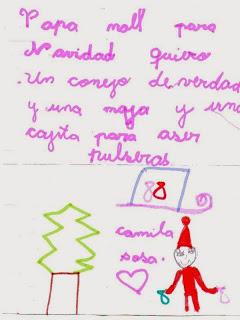 Papa noll para
Navidad quiero
.Un conejo de verdad
y una maja y una
cajita para aser
pulseras
camila
sosa.